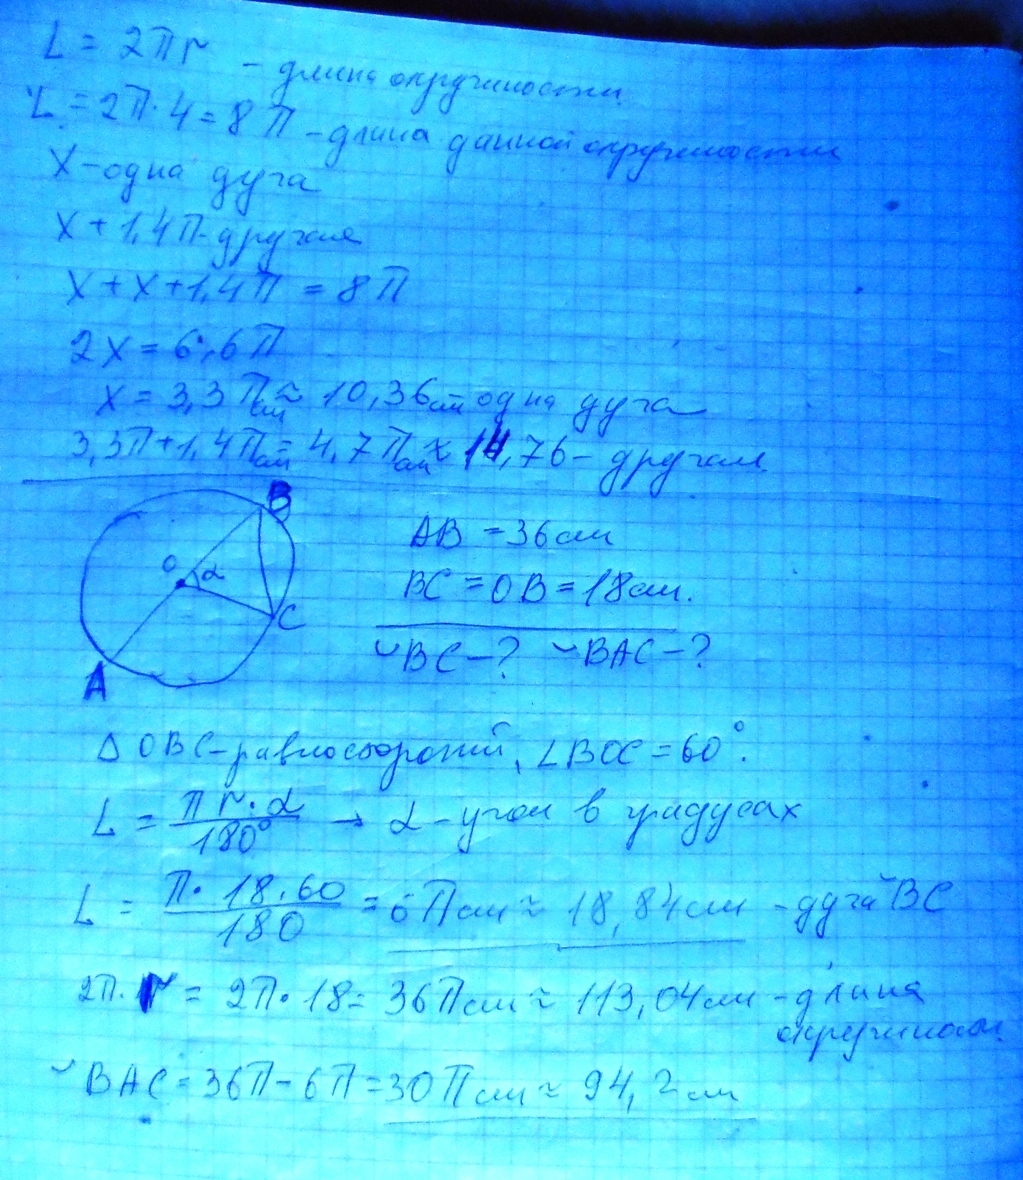 L = 2πr - длина окружности
L = 2π·4 = 8π - длина данной окружности
X - одна дуга
X + 1,4π - другая
X + X + 1,4π = 8π
2X = 6,6π
X = 3,3π см ≈ 10,36 см одна дуга
3,3π + 1,4π см = 4,7π см ≈ 14,76 - другая
B
O α
C
A
AB = 36 см
BC = OB = 18 см.
◡BC - ? ◡BAC - ?
△ OBC - равносторонний, ∠BOC = 60°.
L = πr·α / 180° → α - угол в градусах
L = π·18·60 / 180 = 6π см ≈ 18,84 см - дуга ◡BC
2π·r = 2π·18 = 36π см ≈ 113,04 см - длина
окружности
◡BAC = 36π - 6π = 30π см ≈ 94,2 см